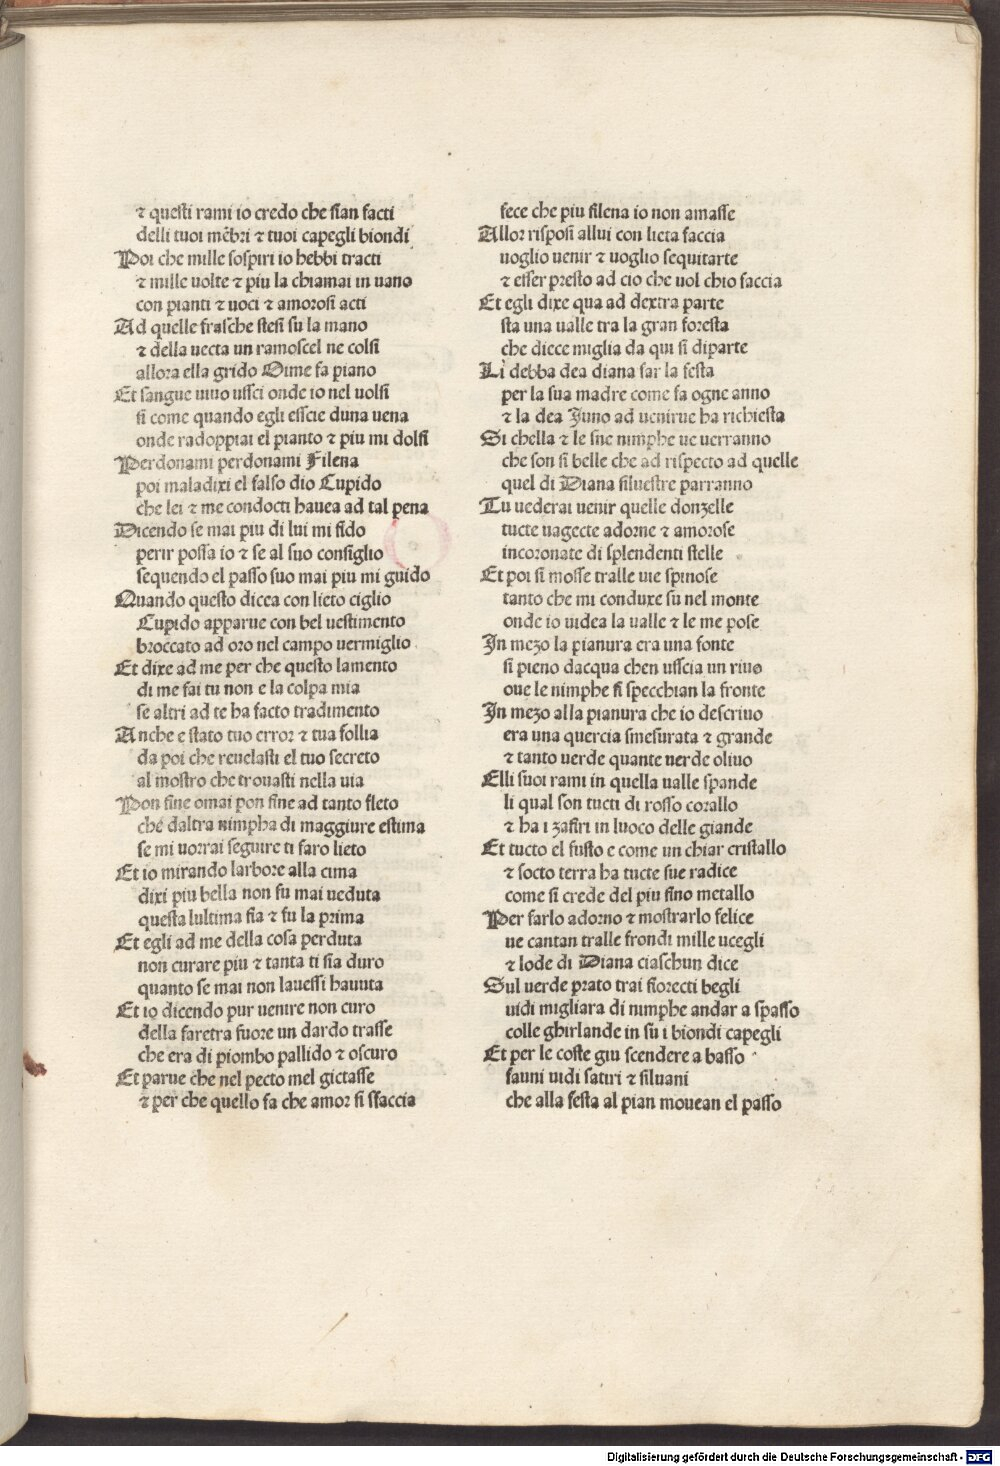 ⁊ questi rami io credo che sian facti
delli tuoi mẽbri ⁊ tuoi capegli biondi
Poi che mille sospiri io hebbi tracti
⁊ mille volte ⁊ piu la chiamai in uano
con pianti ⁊ uoci ⁊ amorosi acti
Ad quelle frasche stesi su la mano
⁊ della uecta un ramoscel ne colsi
allora ella grido Oime fa piano
Et sangue uiuo ussci onde io nel uolsi
si come quando egli esscie duna uena
onde radoppiai el pianto ⁊ piu mi dolsi
Perdonami perdonami Filena
poi maladixi el falso dio Cupido
che lei ⁊ me condocti hauea ad tal pena
Dicendo se mai piu di lui mi fido
perir possa io ⁊ se al suo consiglio
sequendo el passo suo mai piu mi guido
Quando questo dicea con lieto ciglio
Cupido apparue con bel uestimento
broccato ad oro nel campo vermiglio
Et dixe ad me per che questo lamento
di me fai tu non e la colpa mia
se altri ad te ha facto tradimento
Anche e stato tuo error ⁊ tua follia
da poi che reuelasti el tuo secreto
al mostro che trouasti nella uia
Pon fine omai pon fine ad tanto fleto
che daltra nimpha di maggiure estima
se mi uorrai seguire ti faro lieto
Et io mirando larbore alla cima
dixi piu bella non fu mai ueduta
questa lultima fia ⁊ fu la prima
Et egli ad me della cosa perduta
non curare piu ⁊ tanta ti sia duro
quanto se mai non lauessi hauuta
Et io dicendo pur uenire non curo
della faretra fuore un dardo trasse
che era di piombo pallido ⁊ oscuro
Et parue che nel pecto mel gictasse
⁊ per che quello fa che amor si sfaccia
fece che piu filena io non amasse
Allor risposi allui con lieta faccia
uoglio uenir ⁊ uoglio sequitarte
⁊ esser presto ad cio che uol chio faccia
Et egli dixe qua ad dextra parte
sta una ualle tra la gran foresta
che diece miglia da qui si diparte
Li debba dea diana far la festa
per la sua madre come fa ogne anno
⁊ la dea Juno ad uenirue ha richiesta
Si chella ⁊ le sue nimphe ue uerranno
che son si belle che ad rispecto ad quelle
quel di Diana siluestre parranno
Tu uederai uenir quelle donzelle
tucte uagecte adorne ⁊ amorose
incoronate di splendenti stelle
Et poi si mosse tralle uie spinose
tanto che mi conduxe su nel monte
onde io uidea la ualle ⁊ le me pose
In mezo la pianura era una fonte
si pieno dacqua chen usscia un riuo
oue le nimphe si specchian la fronte
In mezo alla pianura che io descriuo
era una quercia smesurata ⁊ grande
⁊ tanto verde quante verde oliuo
Elli suoi rami in quella ualle spande
li qual son tucti di rosso corallo
⁊ ha i zafiri in luoco delle giande
Et tucto el fusto e come un chiar cristallo
⁊ socto terra ha tucte sue radice
come si crede del piu fino metallo
Per farlo adorno ⁊ mostrarlo felice
ue cantan tralle frondi mille ucegli
⁊ lode di Diana ciaschun dice
Sul uerde prato trai fiorecti begli
uidi migliara di nimphe andar a spasso
colle ghirlande in su i biondi capegli
Et per le coste giu scendere a basso
fauni uidi satiri ⁊ siluani
che alla festa al pian mouean el passo
Digitalisierung gefördert durch die Deutsche Forschungsgemeinschaft - DFG